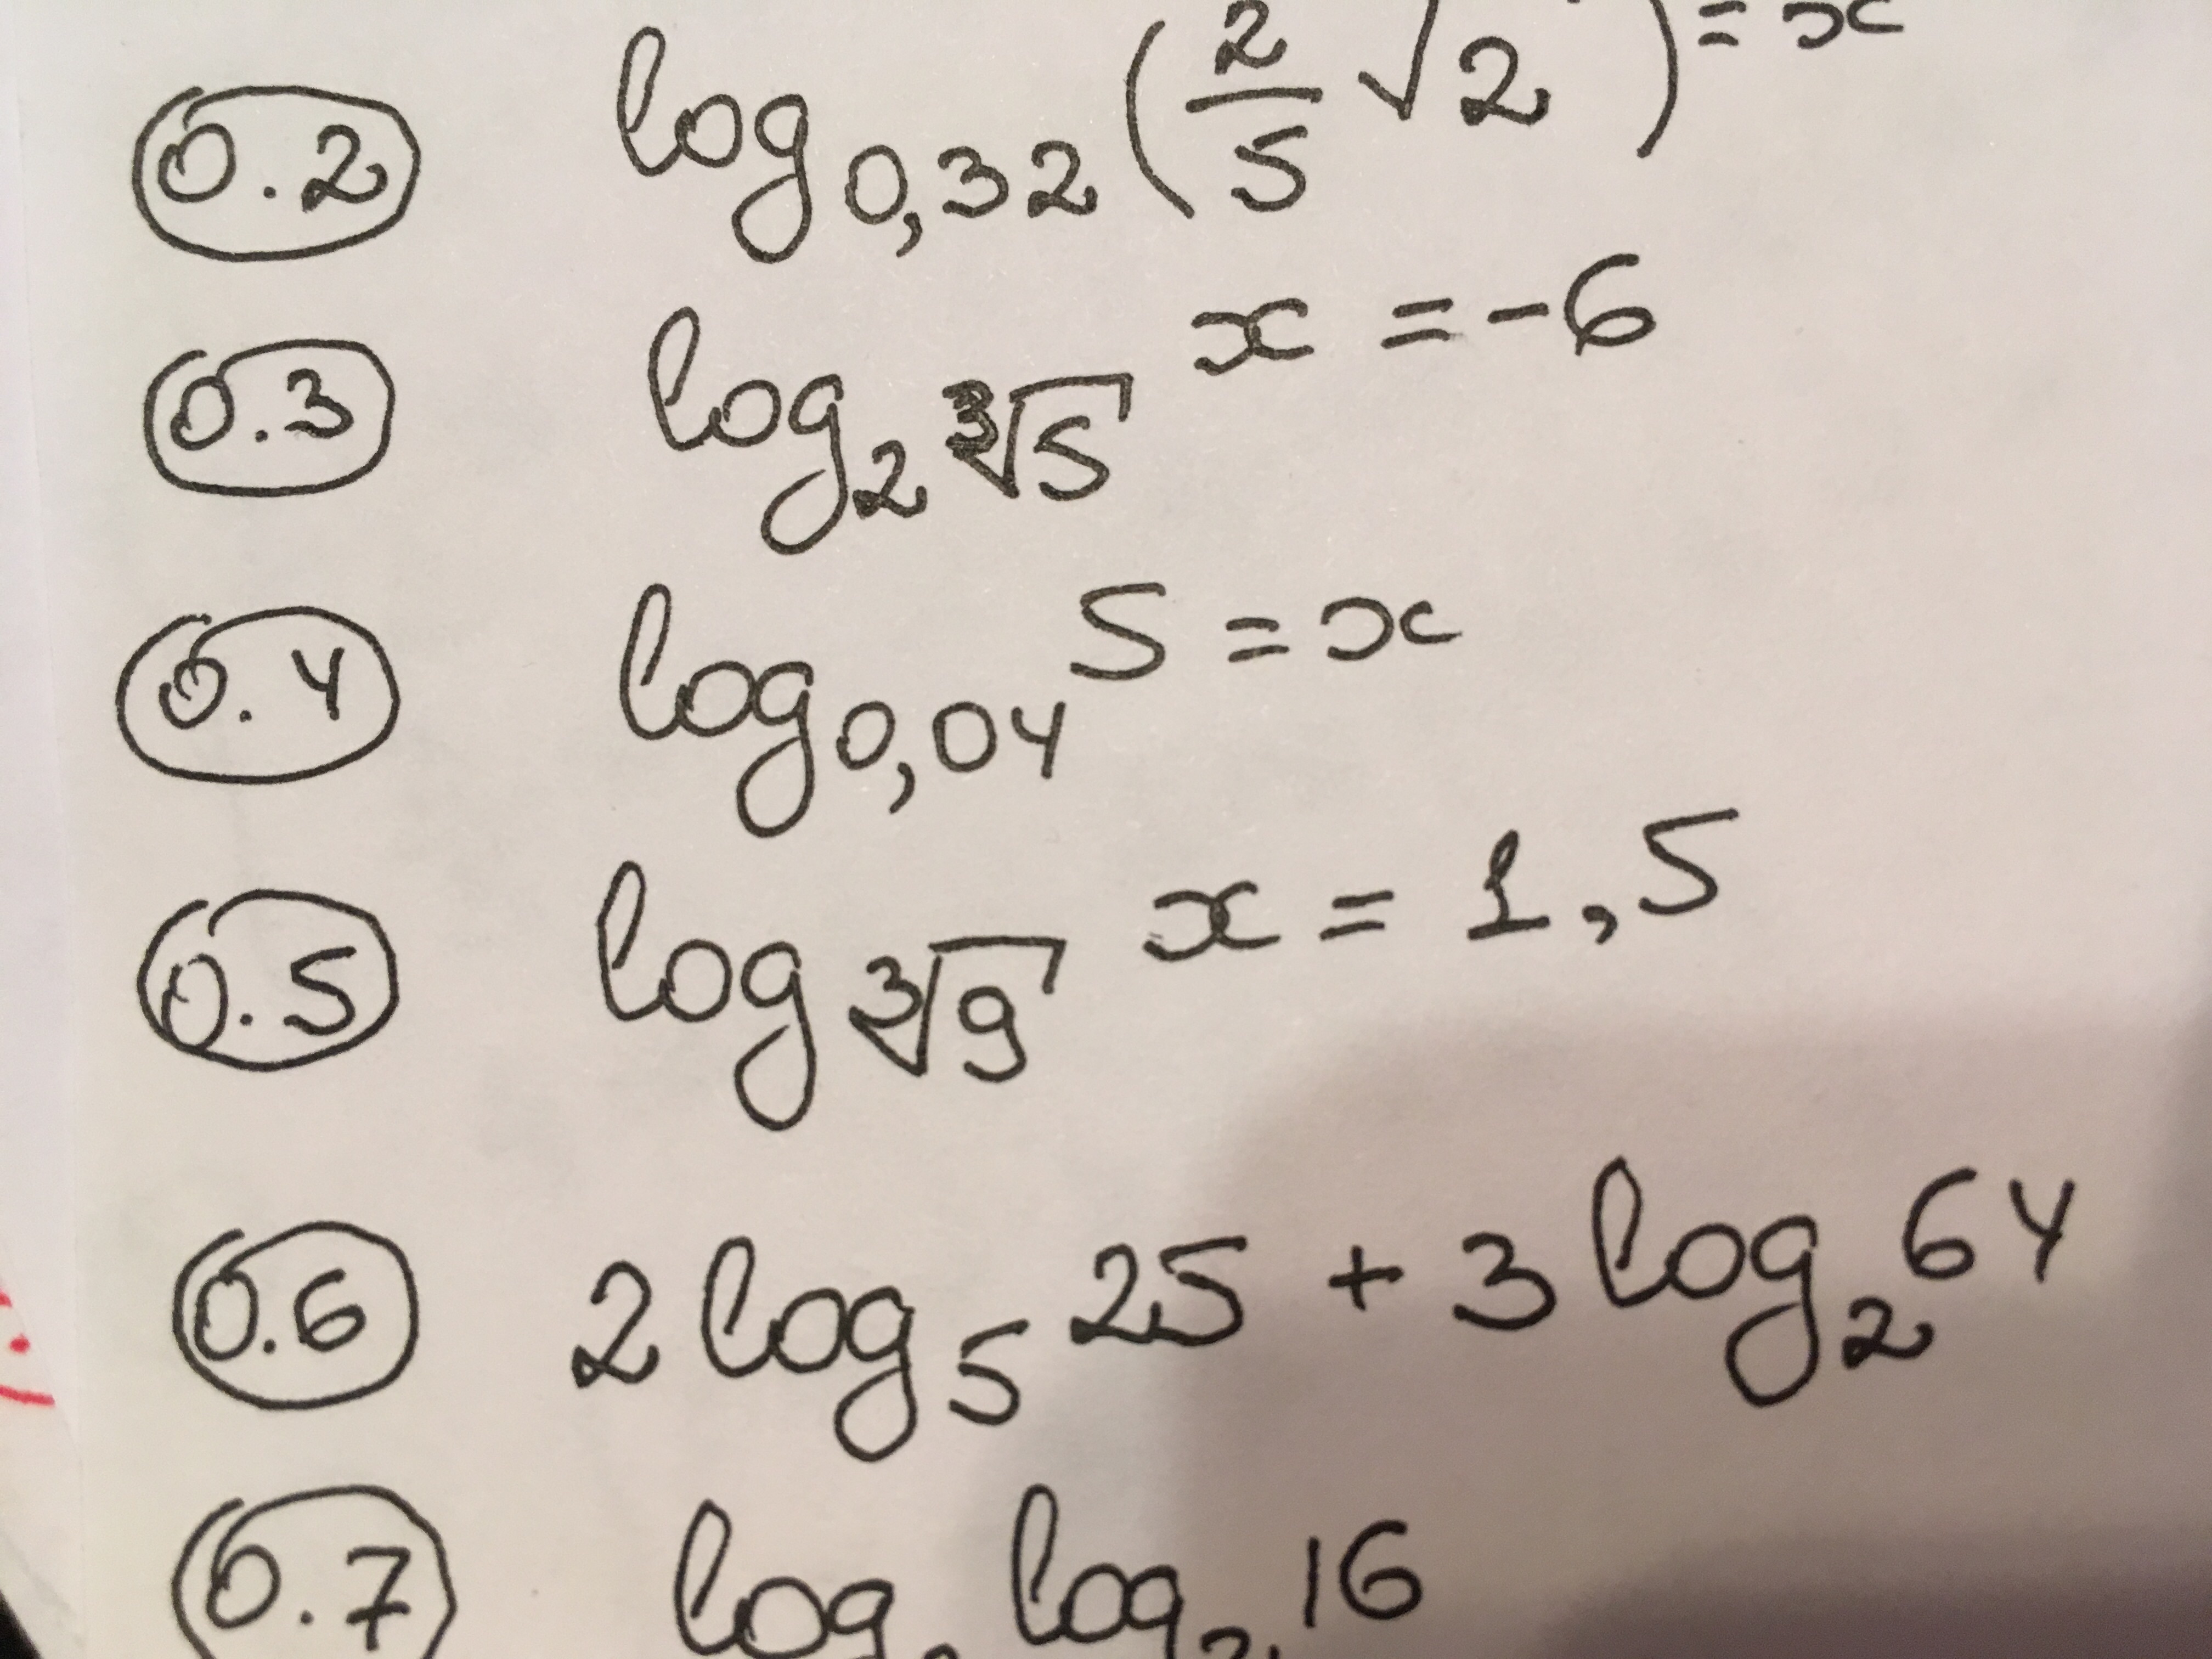 0.2 log₀,₃₂(2/5 √2) = x
0.3 log₂ ∛5 x = -6
0.4 log₀,₀₄ 5 = x
0.5 log ∛9 x = 1,5
0.6 2 log₅ 25 + 3 log₂ 64
0.7 log log 16